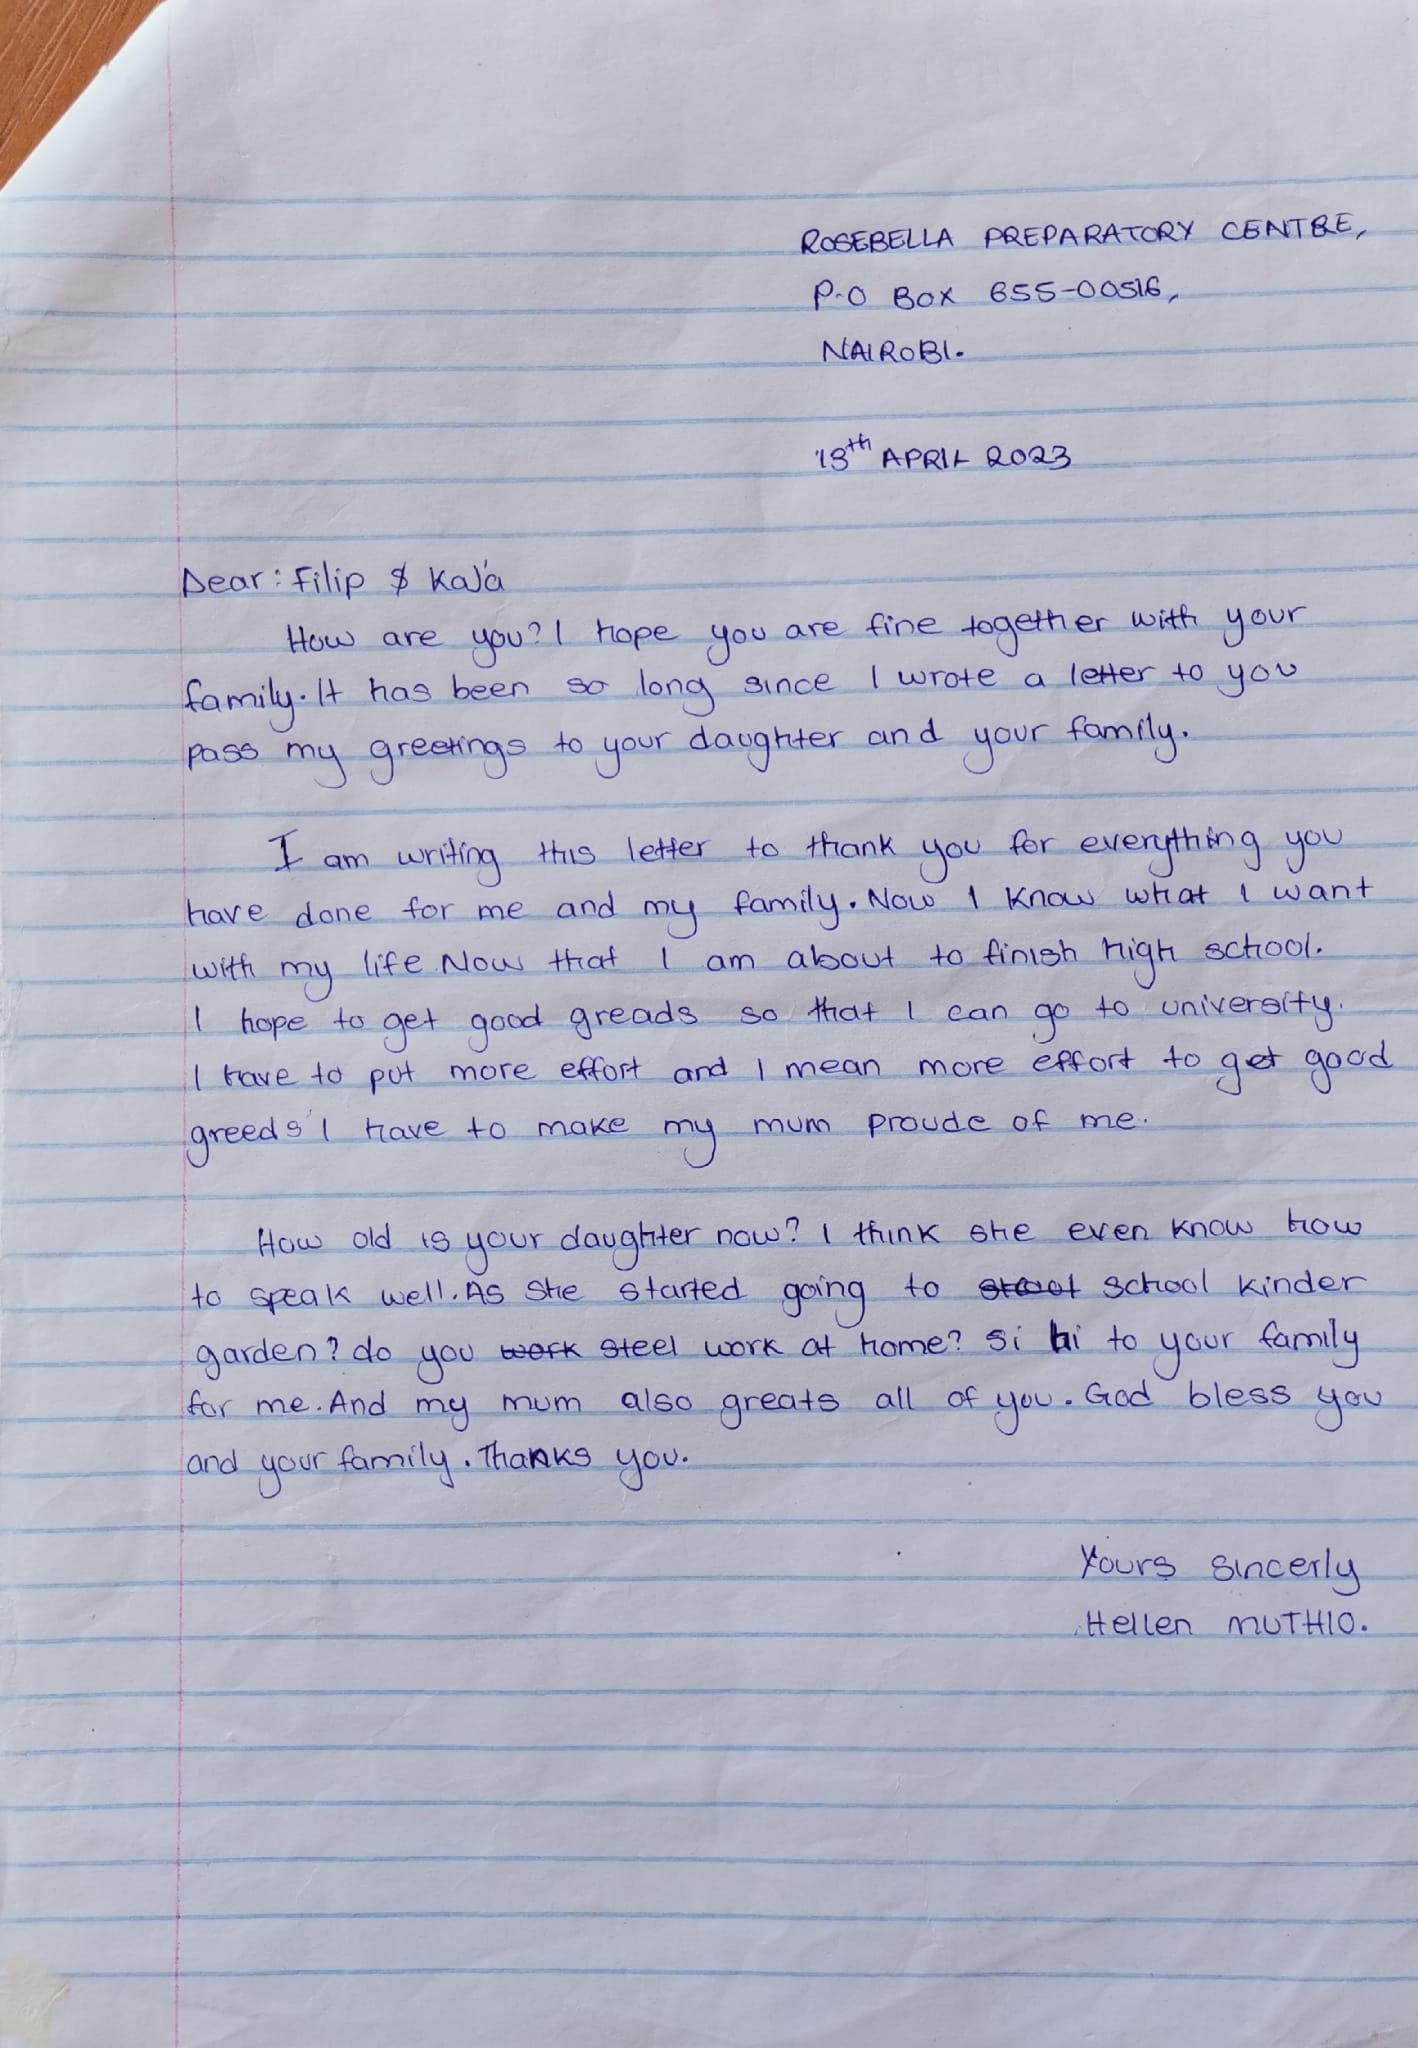 ROSEBELLA PREPARATORY CENTRE,
P.O BOX 655-00516,
NAIROBI.
13th APRIL 2023
Dear: Filip & Kaja
How are you? I hope you are fine together with your
family. It has been so long since I wrote a letter to you
pass my greetings to your daughter and your family.
I am writing this letter to thank you for everything you
have done for me and my family. Now I know what I want
with my life. Now that I am about to finish high school.
I hope to get good greads so that I can go to university.
I have to put more effort and I mean more effort to get good
greeds I have to make my mum proude of me.
How old is your daughter now? I think she even know how
to speak well. As she started going to school kinder
garden? do you work steel work at home? Si hi to your family
for me. And my mum also greats all of you. God bless you
and your family. Thanks you.
Yours sincerly
Hellen MUTHIO.